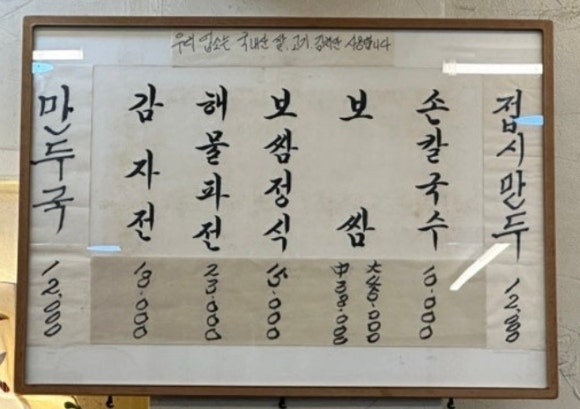 우리 업소는 국내산 쌀,고기,김치만 사용합니다
만두국 12.000
감자전
해물파전 23.000
보쌈정식 15.000
보쌈 大 中 38.000
손칼국수 10.000
접시만두 12.000